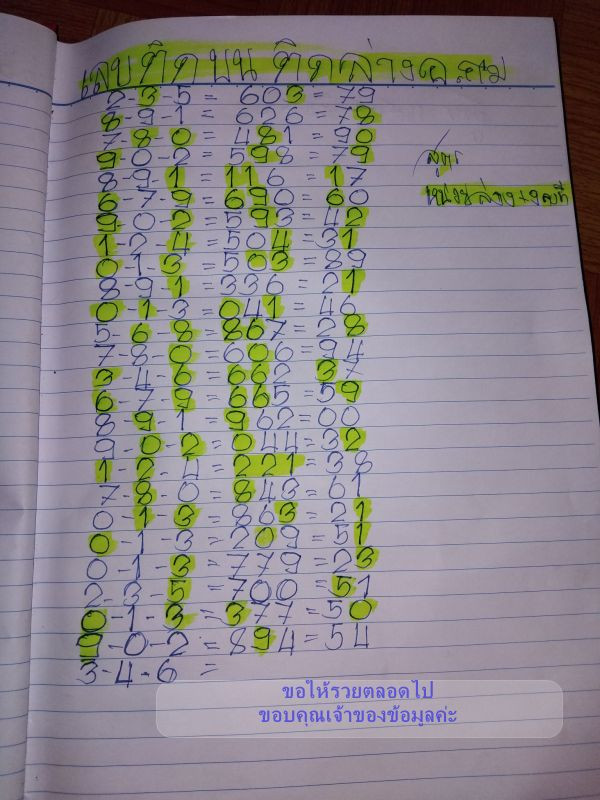 เลขติดบน ติดล่างดูตาม
2-3-5 = 603 = 79
8-9-1 = 626 = 78
7-8-0 = 481 = 90
9-0-2 = 598 = 79
8-9-1 = 116 = 17
6-7-9 = 690 = 60
9-0-2 = 593 = 42
1-2-4 = 504 = 31
0-1-3 = 503 = 89
8-9-1 = 336 = 21
0-1-3 = 041 = 46
5-6-8 867 = 28
7-8-0 = 606 = 94
3-4-6 = 662 = 37
6-7-9 = 665 = 59
8-9-1 = 962 = 00
9-0-2 = 044 = 32
1-2-4 = 221 = 38
7-8-0 = 843 = 61
0-1-3 = 863 = 21
0-1-3 = 209 = 51
0-1-3 = 779 = 23
2-3-5 = 700 = 51
0-1-3 = 377 = 50
9-0-2 = 894 = 54
3-4-6 =
สูตร
ขอให้รวยตลอดไป
ขอบคุณเจ้าของข้อมูลค่ะ